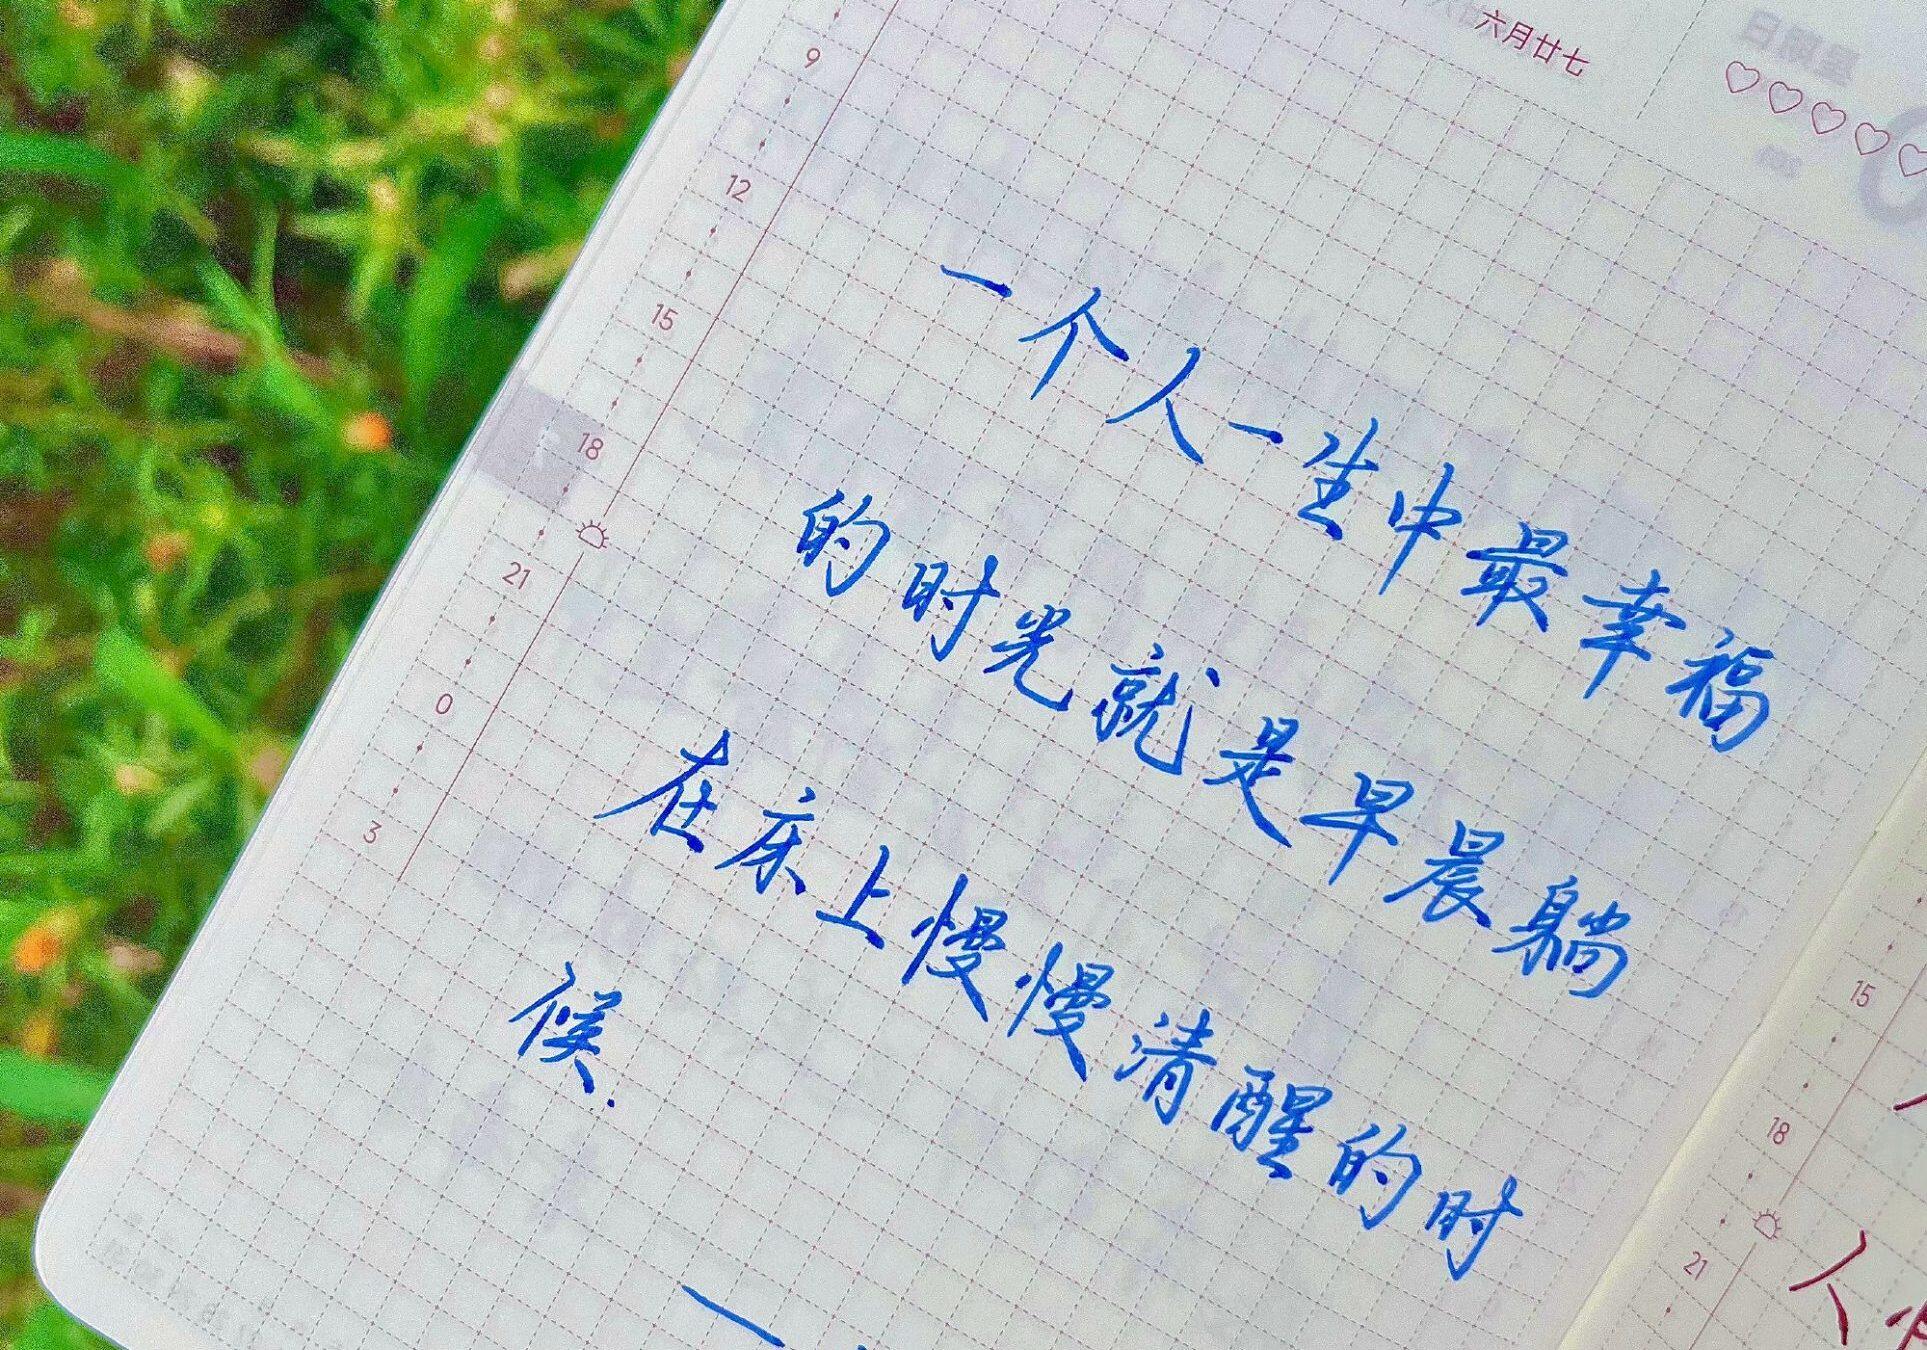 六月廿七
9
12
15
18
21
0
3
一个人一生中最幸福
的时光就是早晨躺
在床上慢慢清醒的时
候.
15
18
21
人